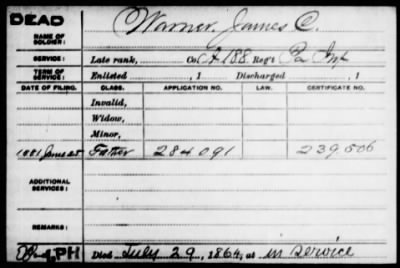 DEAD
NAME OF SOLDIER: Warner, James C.
SERVICE: Late rank, Co. A 188 Reg't Pa Inf
TERM OF SERVICE: Enlisted , 1 Discharged , 1
DATE OF FILING. CLASS. APPLICATION NO. LAW. CERTIFICATE NO.
Invalid,
Widow,
Minor,
1881 June 25 Father 284091 239506
ADDITIONAL SERVICES:
REMARKS:
PH Died July 29, 1864, at in service